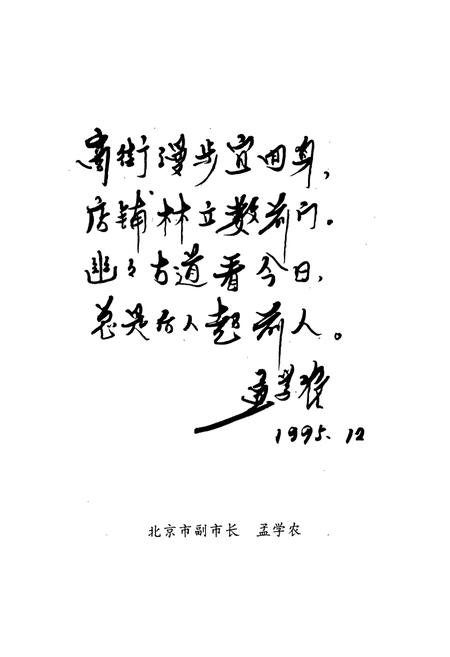 商街漫步宜回身,
店铺林立数前门。
幽々古道看今日,
总是后人超前人。
孟学农
1995.12
北京市副市长 孟学农